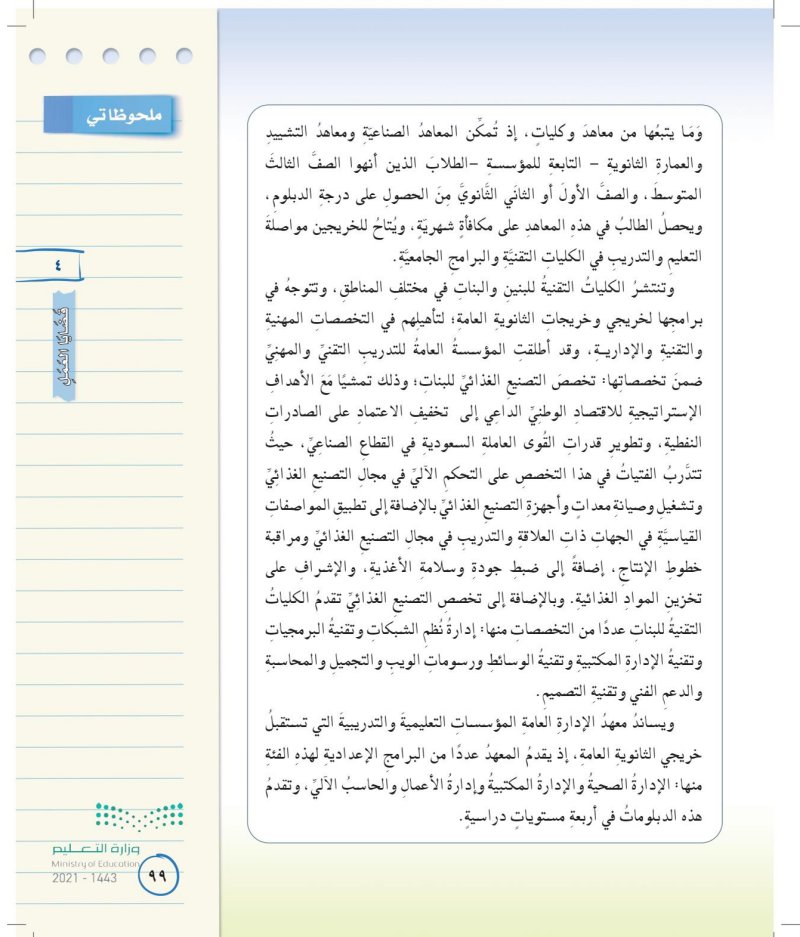 ملحوظاتي
٤
قَضَايَا العَمَلِ
وَمَا يتبعُها من معاهدَ وكلياتٍ، إذ تُمكِّن المعاهدُ الصناعيّةِ ومعاهدُ التشييدِ
والعمارةِ الثانويةِ - التابعةِ للمؤسسةِ -الطلابَ الذين أنهوا الصفَّ الثالثَ
المتوسطَ، والصفَّ الأولَ أو الثانَي الثَّانويَّ مِنَ الحصولِ على درجةِ الدبلومِ،
ويحصلُ الطالبُ في هذهِ المعاهدِ على مكافأةٍ شهريّةٍ، ويُتاحُ للخريجين مواصلةَ
التعليمِ والتدريبِ في الكلياتِ التقنيَّةِ والبرامجِ الجامعيَّةِ.
وتنتشرُ الكلياتُ التقنيةُ للبنينِ والبناتِ في مختلفِ المناطقِ، وتتوجهُ في
برامجِها لخريجي وخريجاتِ الثانويةِ العامةِ؛ لتأهيلِهم في التخصصاتِ المهنيةِ
والتقنيةِ والإداريـةِ، وقد أطلقتِ المؤسسةُ العامةُ للتدريبِ التقنيِّ والمهنِيِّ
ضمنَ تخصصاتِها: تخصصَ التصنيعِ الغذائيِّ للبناتِ؛ وذلك تمشيًا مَعَ الأهدافِ
الإستراتيجيةِ للاقتصادِ الوطنِيِّ الداعِي إلى تخفيفِ الاعتمادِ على الصادراتِ
النفطيةِ، وتطويرِ قدراتِ القُوى العاملةِ السعوديةِ في القطاعِ الصناعِيِّ، حيثُ
تتدَّربُ الفتياتُ في هذا التخصصِ على التحكمِ الآليِّ في مجالِ التصنيعِ الغذائيِّ
وتشغيلِ وصيانةِ معداتٍ وأجهزةِ التصنيعِ الغذائيِّ بالإضافةِ إلى تطبيقِ المواصفاتِ
القياسيَّةِ في الجهاتِ ذاتِ العلاقةِ والتدريبِ في مجالِ التصنيعِ الغذائيِّ ومراقبة
خطوطِ الإنتاجِ، إضافةً إلى ضبطِ جودةِ وسلامةِ الأغذيةِ، والإشرافِ على
تخزينِ الموادِ الغذائيةِ. وبالإضافةِ إلى تخصصِ التصنيعِ الغذائيِّ تقدمُ الكلياتُ
التقنيةُ للبناتِ عددًا من التخصصاتِ منها: إدارةُ نُظمِ الشبكاتِ وتقنيةُ البرمجياتِ
وتقنيةُ الإدارةِ المكتبيةِ وتقنيةُ الوسائطِ ورسوماتِ الويبِ والتجميلِ والمحاسبةِ
والدعمِ الفني وتقنيةِ التصميمِ.
ويساندُ معهدُ الإدارةِ العامةِ المؤسساتِ التعليميةَ والتدريبيةَ التي تستقبلُ
خريجي الثانويةِ العامةِ، إذ يقدمُ المعهدُ عددًا من البرامجِ الإعداديةِ لهذهِ الفئةِ
منها: الإدارةُ الصحيةُ والإدارةُ المكتبيةُ وإدارةُ الأعمالِ والحاسبُ الآليُّ، وتقدمُ
هذه الدبلوماتُ في أربعةِ مستوياتٍ دراسيةٍ.
وزارة التعـليم
Ministry of Education
2021 - 1443
٩٩